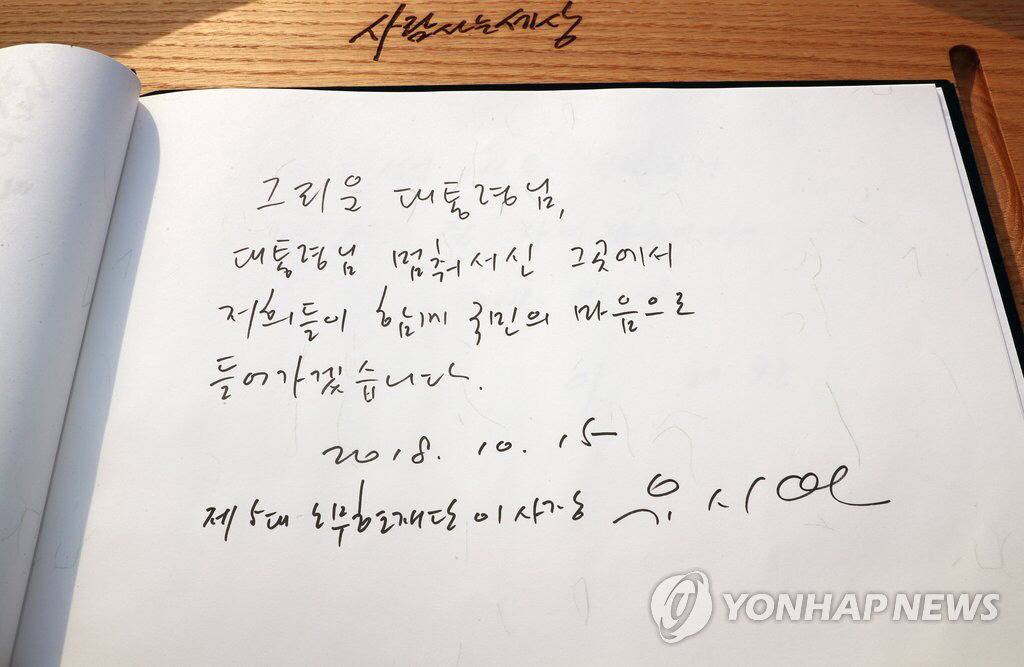 사람사는세상
그리운 대통령님,
대통령님 멈춰서신 그곳에서
저희들이 함께 국민의 마음으로
들어가겠습니다.
2018. 10. 15
제5대 노무현재단 이사장 유시민
YONHAP NEWS